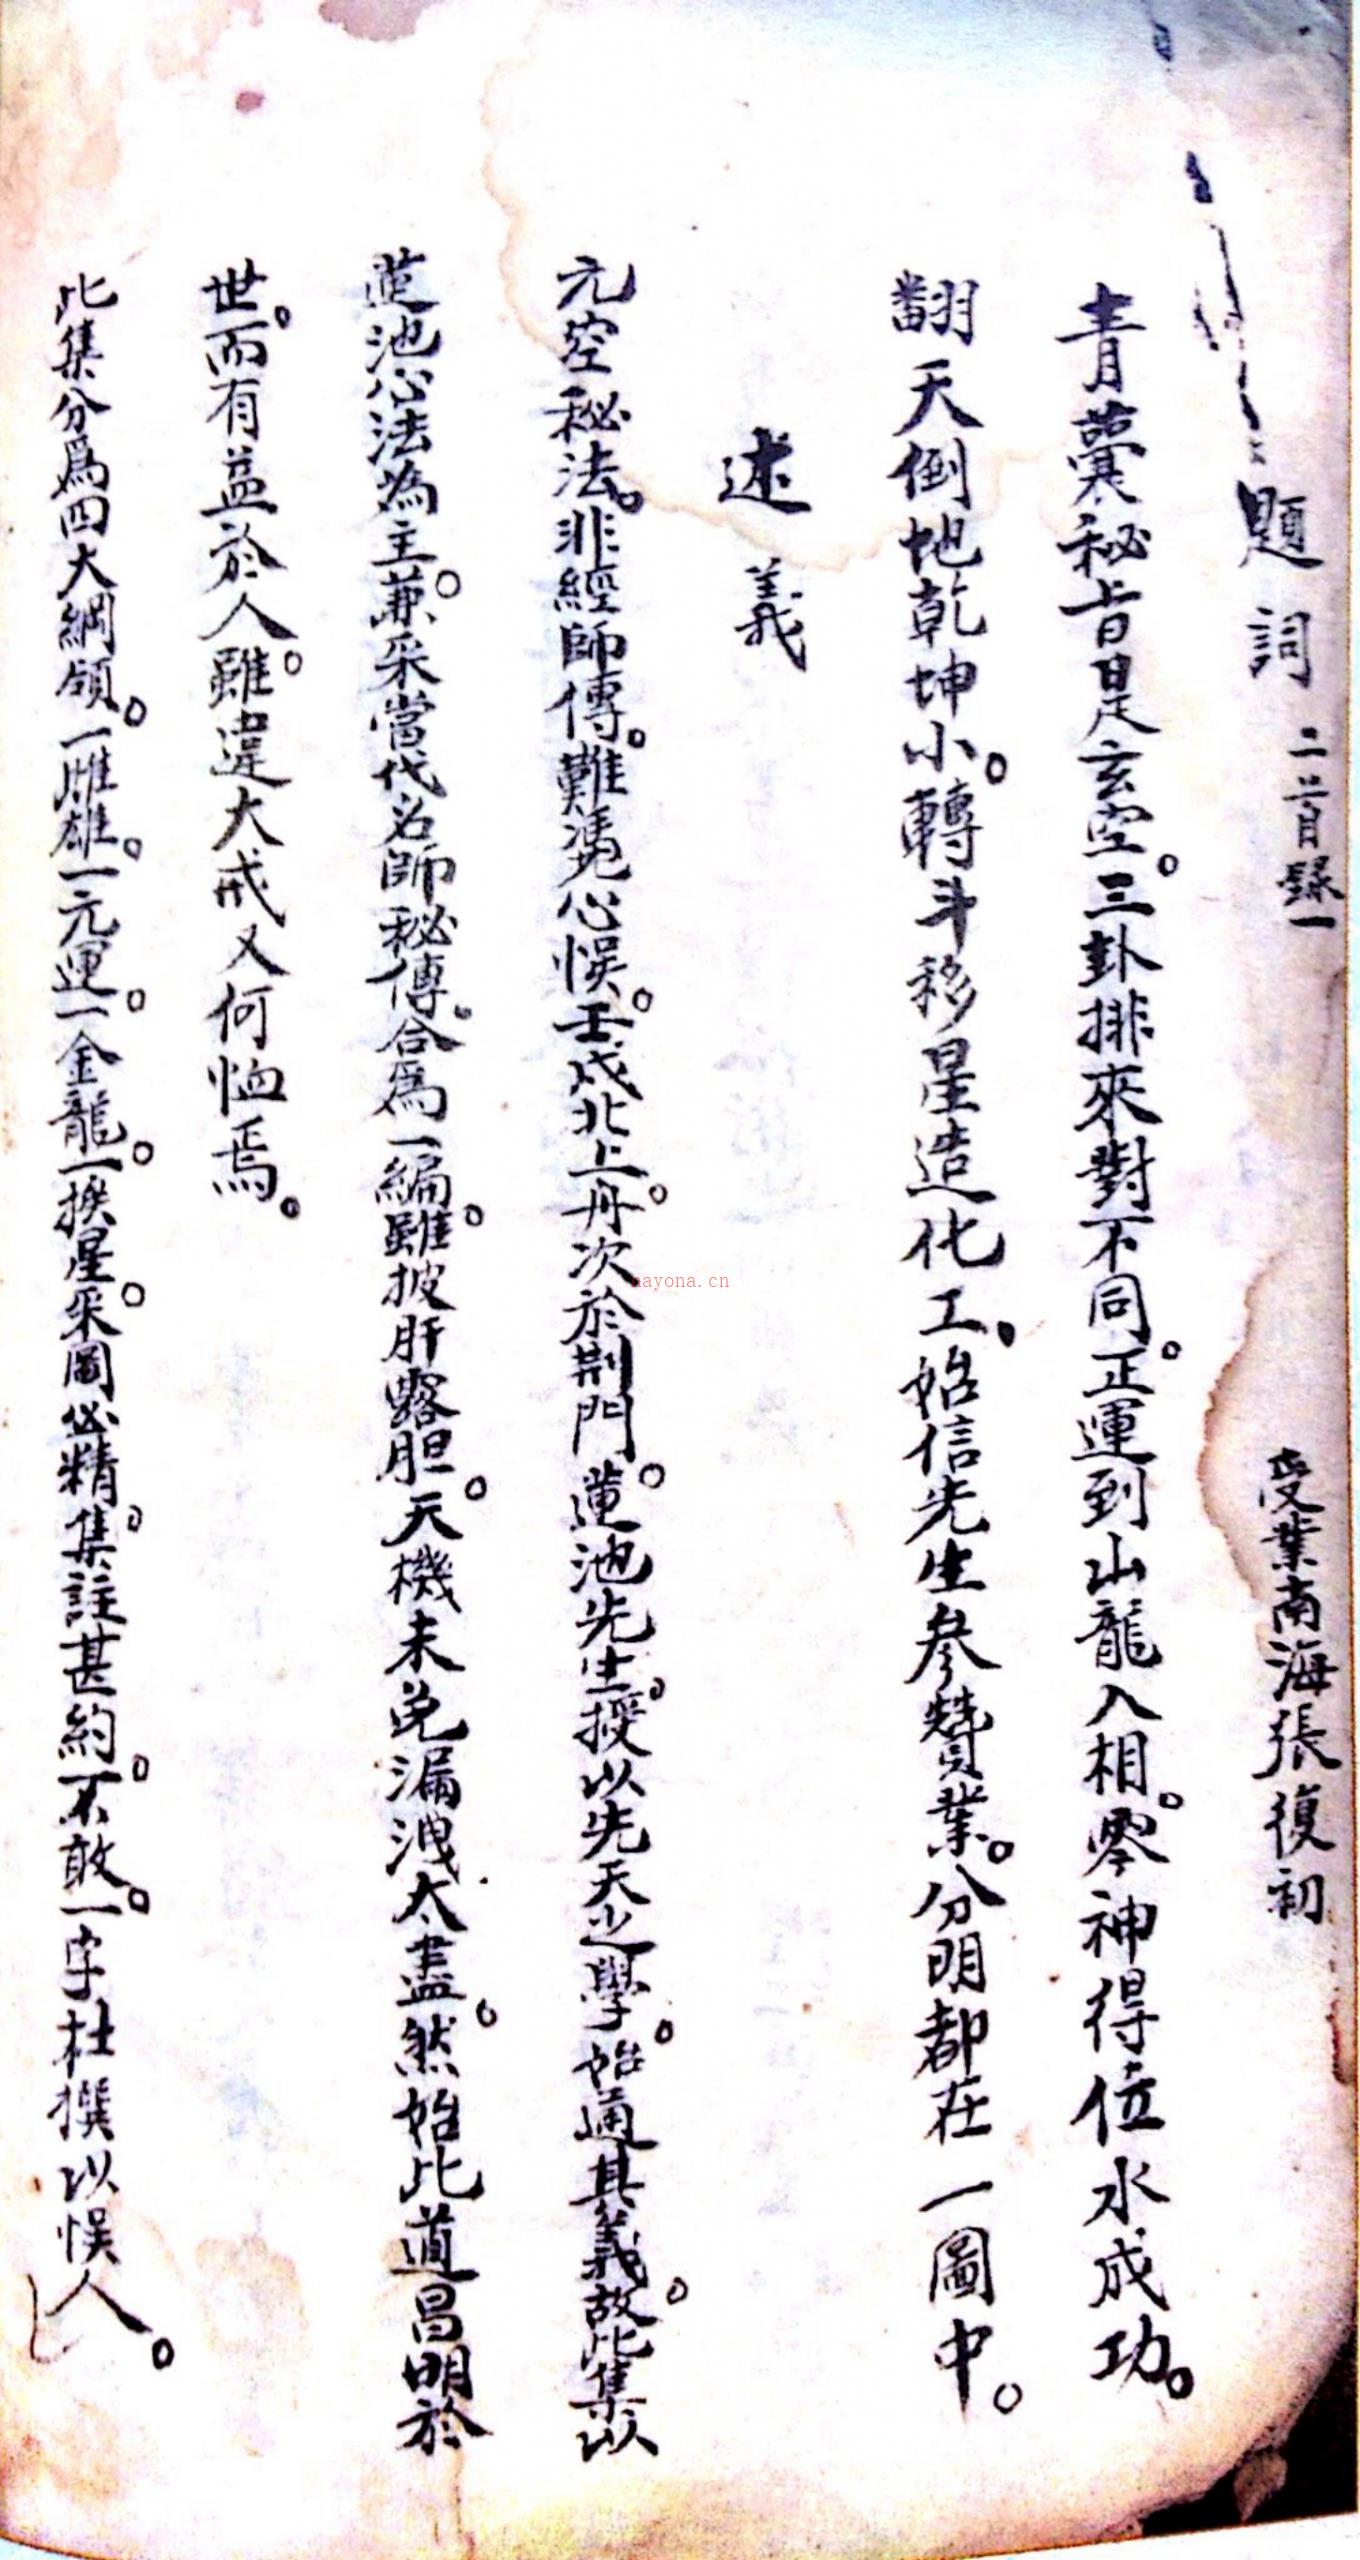 題詞 二首錄一 受業南海張復初
青囊秘旨是玄空。三卦排來對不同。正運到山龍入相。零神得位水成功。
翻天倒地乾坤小。轉斗移星造化工。始信先生參贊業。分明都在一圖中。
述義
元空秘法。非經師傳。難憑心悮。壬戌北上。舟次於荆門。蓮池先生。授以先天之學。始通其義。故此集以
蓮池心法為主。兼采當代名師秘傳。合爲一編。雖披肝露胆。天機未免漏洩太盡。然始此道昌明於
世。而有益於人。雖違大戒又何恤焉。
此集分爲四大綱領。一雌雄。一元運。一金龍。一挨星。采圖必精。集註甚約。不敢。一字杜撰以悮人。
nayona.cn